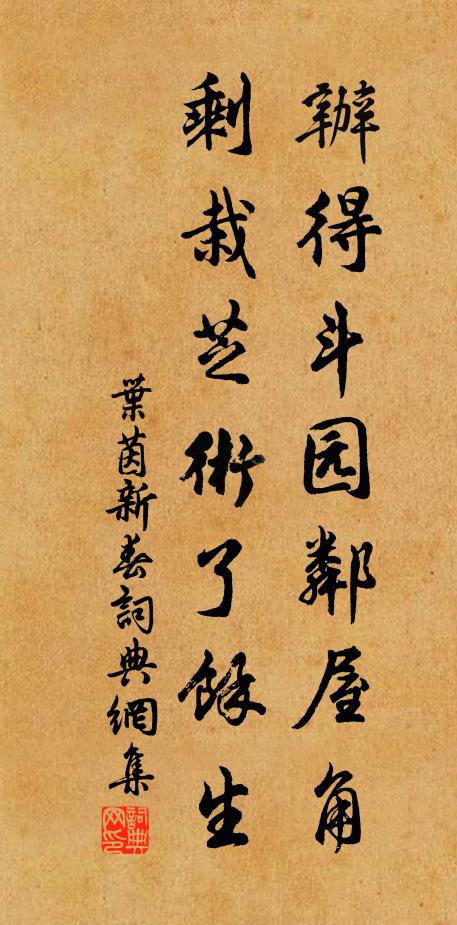 辦得斗园鄰屋角
剩栽芝術了餘生
葉茵新春詞典網集
詞典网印